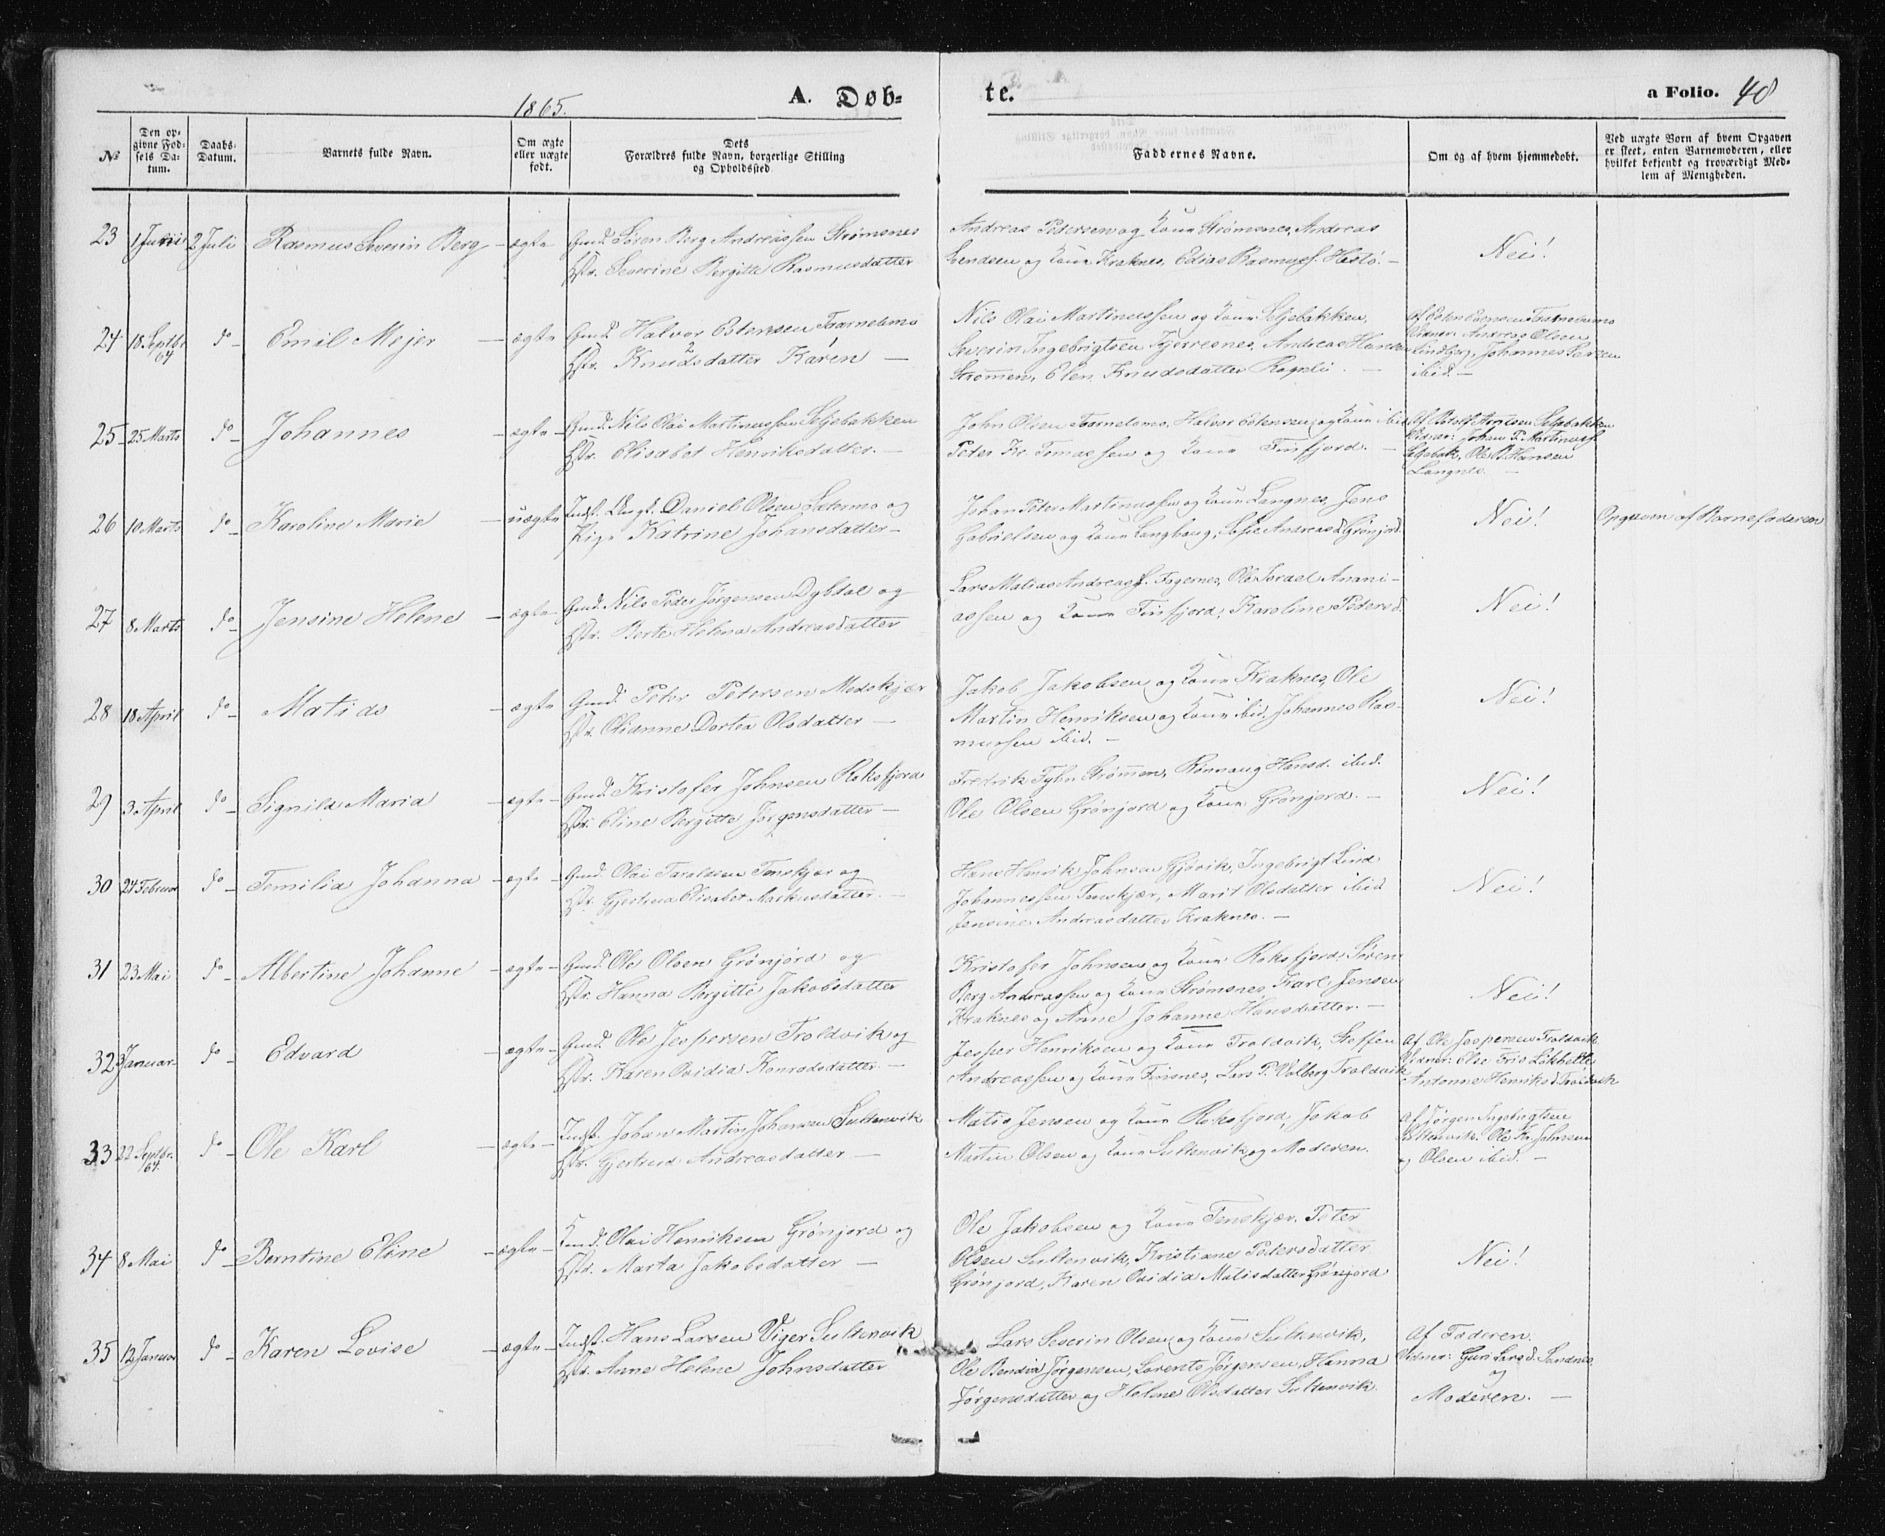 1865.
A. Døb-
te.
a Folio. 48
№
Den op-
givne Fød-
sels Da-
tum.
Daabs-
Datum.
Barnets fulde Navn.
Om ægte
eller uægte
født.
Dets
Forældres fulde Navn, borgerlige Stilling
og Opholdssted
Faddernes Navne.
Om og af hvem hjemmedøbt.
Ved uægte Børn af hvem Opgaven
er skeet, enten Barnemoderen, eller
hvilket bekjendt og troværdigt Med-
lem af Menigheden.
23 1 Juni 2 Juli Rasmus Severin Berg - ægte Gmd. Søren Berg Andreassen Strømsnes
Hstr. Severine Bergitte Rasmusdatter
Andreas Pedersen og Kone Strømsnes, Andreas
Svendsen og Kone Kraknes, Edias Rasmuss. Hestø. -
Nei!
24 18 Septbr. 64 do - Emil Mejer - ægte Gmd. Halvor Estensen Tarnelemo
Hstr. Knudsdatter Karen -
Nils Olai Martinussen og Kone Seljebakken,
Severin Ingebrigtsen Fjerresnes, Andreas Hansen
Strømmen, Elen Knudsdatter Rognli. -
Af Esten
Vidner: Andreas Olsen
Lindberg, Johannes Larsen
ibid. -
25 - 25 Marts do - Johannes - ægte - Gmd. Nils Olai Martinussen Seljebakken
Hstr. Elisabet Henriksdatter. -
John Olsen Tarnelemo, Halvor Estensen og Kone ibid
Peter Fr. Tomassen og Kone Finfjord. -
Af Rolof Arntsen Seljebakken
Vidner: Johan P. Martinuss.
Seljebak, Ole B. Hansen
Langnes. -
26 10 Marts do - Karoline Marie - uægte Indst. Ungk. Daniel Olsen Sætermo og
Pige Katrine Johansdatter -
Johan Peter Martinussen og Kone Langnes, Jens
Gabrielsen og Kone Langhaug, Sofie Andreasd. Grønjord.
Nei!
Opgaven af Barnefaderen
27 8 Marts do - Jensine Helene - ægte - Gmd. Nils Peder Jørgensen Dybdal og
Hstr. Berte Helena Andreasdatter
Lars Matias Andreass. Fagernes, Ole Israel Anani-
assen og Kone Finfjord, Karoline Pedersd.
Nei!
28 18 April do - Matids - ægte Gmd. Peter Petersen Medskjær
Hstr. Olianne Dortea Olsdatter -
Jakob Jakobsen og Kone Kraknes, Ole
Martin Henriksen og Kone ibid, Johannes Ras-
mussen ibid. -
Nei!
29 3 April do - Signild Maria - ægte - Gmd. Kristofer Johnsen Roksfjord
Hstr. Eline Bergitte Jørgensdatter -
Fredrik Tybr. Strømmen, Rønnaug Hansd. ibid.
Ole Olsen Grønjord og Kone Grønjord. -
Nei!
30 24 Februar do - Temilia Johanna - ægte - Gmd. Olai Taraldsen Tenskjær og
Hstr. Gjertrud Elisabet Markusdatter. -
Hans Henrik Johnsen Gjøvik, Ingebrigt Lind
Johannessen Tenskjær, Marit Olsdatter ibid
Jensine Andreasdatter Kraknes. -
Nei!
31 23 Mai do - Albertine Johanne - ægte - Gmd. Ole Olsen Grønjord og
Hstr. Hanna Bergitte Jakobsdatter
Kristofer Johnsen og Kone Roksfjord, Søren
Berg Andreassen og Kone Strømsnes, Karl Jensen
Kraknes og Anne Johanne Hansdatter. -
Nei!
32 3 Januar do - Edvard - ægte - Gmd. Ole Jespersen Troldvik og
Hstr. Karen Ovidia Konradsdatter. -
Jesper Henriksen og Kone Troldvik, Steffen
Andreassen og Kone Finsnes, Lars P. Valberg Troldvik
Af Ole Jespersen Troldvik.
Vidner: Else Fris
Antonne Henriksd. Troldvik
33 22 Septbr. 64. do - Ole Karl - ægte - Indst. Johan Martin Johansen Sultenvik
Hstr. Gjertrud Andreasdatter -
Matis Jensen og Kone Roksfjord, Jakob
Martin Olsen og Kone Sultenvik og Moderen.
Af Jørgen Ingebrigtsen
Sultenvik. Ole Fr. Johnsen
og Olsen ibid. -
34 8 Mai do - Berntine Eline - ægte - Gmd. Olai Henriksen Grønjord og
Hstr. Marta Jakobsdatter -
Ole Jakobsen og Kone Tenskjær, Peter
Olsen Sultenvik, Kristiane Petersdatter
Grønjord, Karen Ovidia Matisdatter Grønjord
Nei!
35 12 Januar do - Karen Lovise - ægte - Indst. Hans Larsen Viger Sultenvik
Hstr. Anne Helene Johnsdatter
Lars Severin Olsen og Kone Sultenvik,
Ole Bendix Jørgensen, Lorents Jørgensen, Hanna
Jørgensdatter og Helene Olsdatter Sultenvik.
Af Faderen.
Vidner: Guri Larsd. Sandnes,
og
Moderen. -